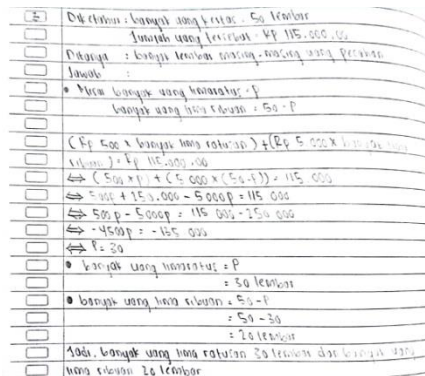 2 Diketahui : banyak uang kertas . 50 lembar
Jumlah uang tersebut . Rp 115.000.00
Ditanya : banyak lembar masing-masing uang pecahan
Jawab :
• Misal banyak uang limaratus = P
banyak uang lima ribuan = 50 - P
(Rp 500 x banyak lima ratusan) + (Rp 5.000 x banyak lima
ribuan) = Rp 115.000.00
⇔ (500 x P) + (5.000 x (50-P)) = 115.000
⇔ 500P + 250.000 - 5000P = 115 000
⇔ 500 P - 5000P = 115 000 - 250 000
⇔ -4500P = -135 000
⇔ P = 30
• banyak uang limaratus = P
= 30 lembar
• banyak uang lima ribuan = 50 - P
= 50 - 30
= 20 lembar
Jadi, banyak uang lima ratusan 30 lembar dan banyak uang
lima ribuan 20 lembar